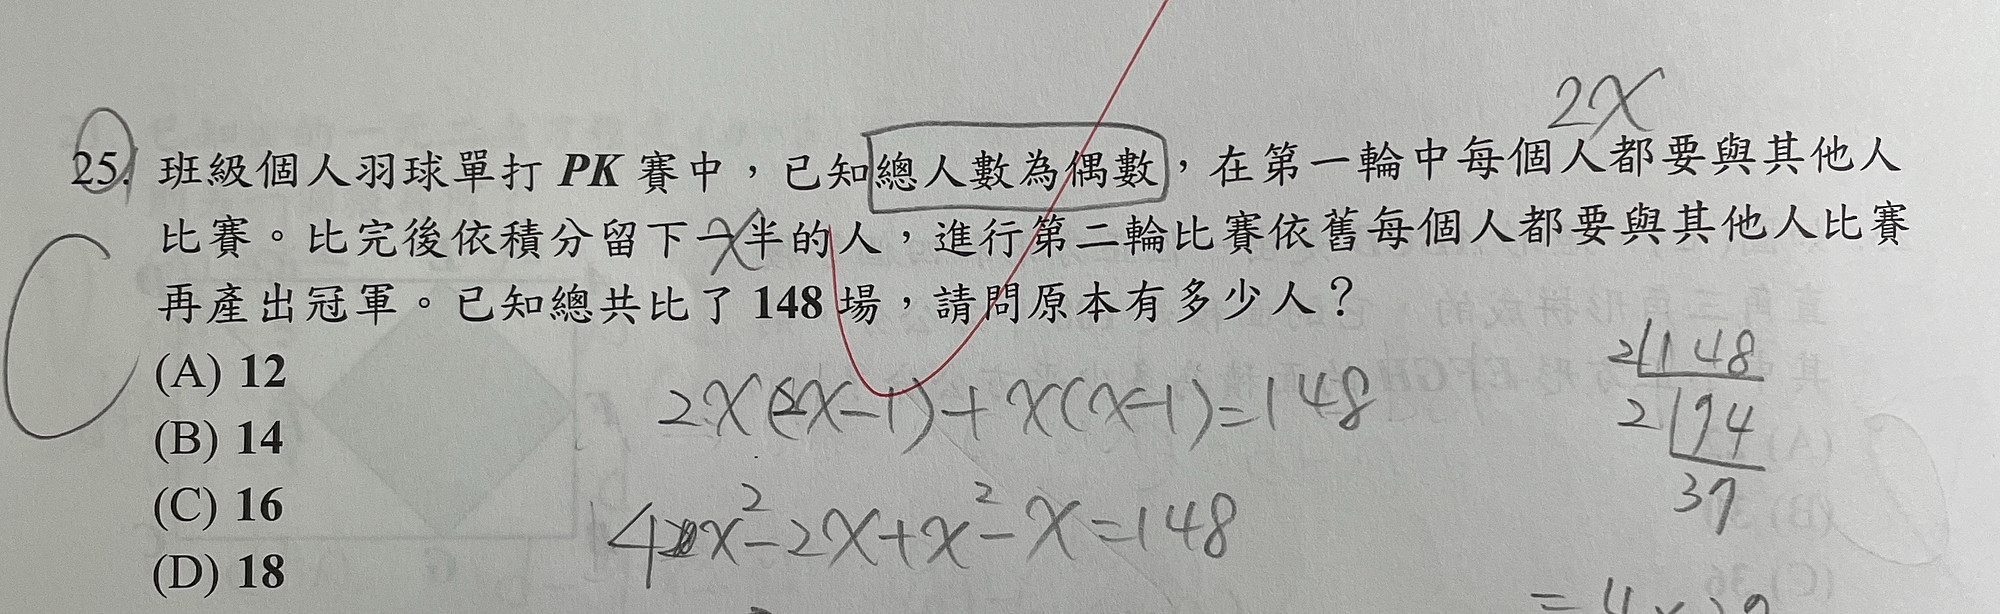 2X
25. 班級個人羽球單打 PK 賽中，已知總人數為偶數，在第一輪中每個人都要與其他人
比賽。比完後依積分留下一半的人，進行第二輪比賽依舊每個人都要與其他人比賽
X
再產出冠軍。已知總共比了 148 場，請問原本有多少人？
C
(A) 12
(B) 14
(C) 16
(D) 18
2X(2X-1)+X(X-1)=148
4x²-2X+x²-X=148
2|148
2|74
37